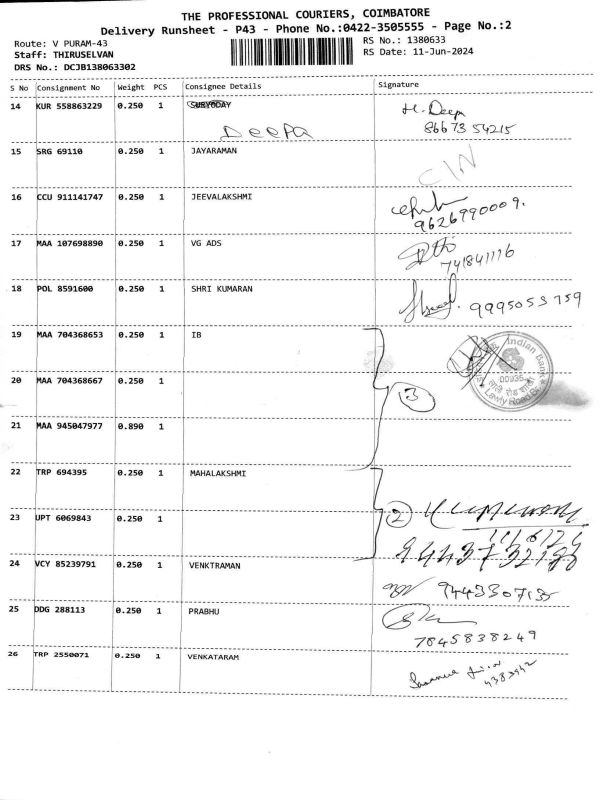 THE PROFESSIONAL COURIERS, COIMBATORE
Delivery Runsheet - P43 - Phone No.:0422-3505555 - Page No.:2
Route: V PURAM-43
RS No.: 1380633
Staff: THIRUSELVAN
RS Date: 11-Jun-2024
DRS No.: DCJB138063302
S No Consignment No Weight PCS Consignee Details Signature
14 KUR 558863229 0.250 1 SURYODAY H. Deepa
DEEPA 8667354215
15 SRG 69110 0.250 1 JAYARAMAN
C/N
16 CCU 911141747 0.250 1 JEEVALAKSHMI
9626990009.
17 MAA 107698890 0.250 1 VG ADS
741841116
18 POL 8591600 0.250 1 SHRI KUMARAN
9995053759
19 MAA 704368653 0.250 1 IB
Indian Bank
00935
Lawly Road Br.
20 MAA 704368667 0.250 1
3
21 MAA 945047977 0.890 1
22 TRP 694395 0.250 1 MAHALAKSHMI
23 UPT 6069843 0.250 1 2
11/6/24
24 VCY 85239791 0.250 1 VENKTRAMAN
9443307135
25 DDG 288113 0.250 1 PRABHU
7845838249
26 TRP 2550071 0.250 1 VENKATARAM